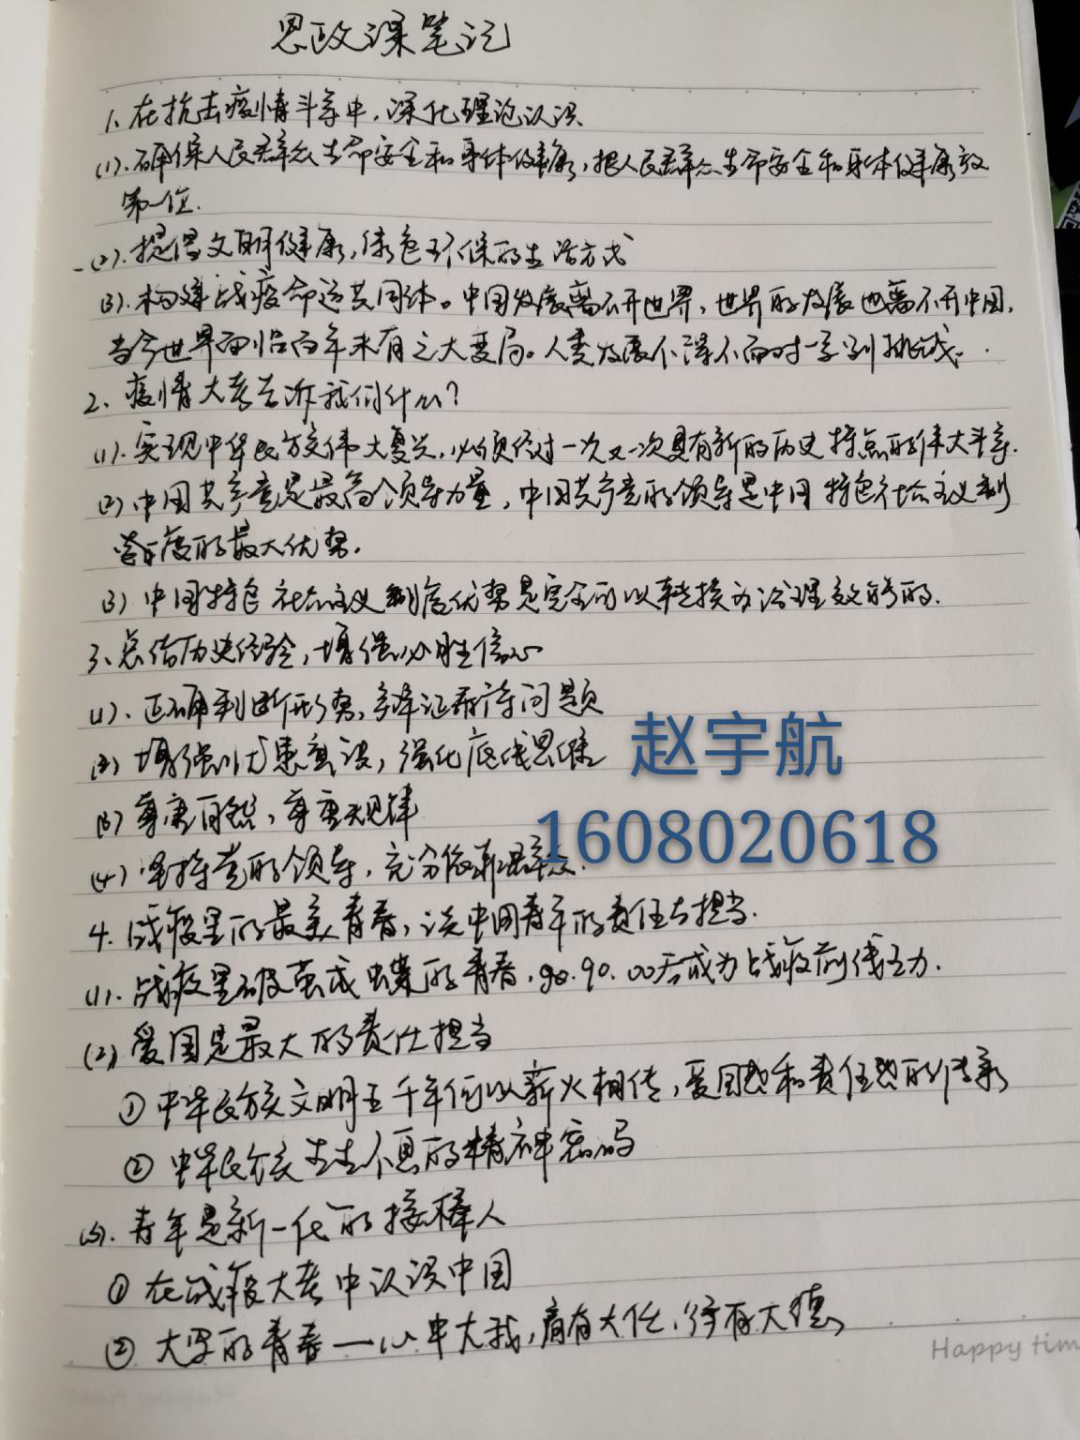 思政课笔记
1、在抗击疫情斗争中，深化理论认识
(1).确保人民群众生命安全和身体健康，把人民群众生命安全和身体健康放
第一位.
(2).提倡文明健康，绿色环保的生活方式
(3).构建战疫命运共同体。中国发展离不开世界，世界的发展也离不开中国.
当今世界面临百年未有之大变局。人类发展不得不面对一系列挑战.
2、疫情大考告诉我们什么？
(1).实现中华民族伟大复兴，必须经过一次又一次具有新的历史特点的伟大斗争.
(2)中国共产党是最高领导力量，中国共产党的领导是中国特色社会主义制
度的最大优势.
(3)中国特色社会主义制度优势是完全可以转换为治理效能的.
3、总结历史经验，增强必胜信心
(1)、正确判断形势，辩证看待问题
(2)增强忧患意识，强化底线思维
(3)尊重自然，尊重规律
(4)坚持党的领导，充分依靠群众.
赵宇航
1608020618
4.战疫里的最美青春，谈中国青年的责任与担当.
(1).战疫里破茧成蝶的青春，90.90.00后成为战疫前线主力.
(2)爱国是最大的责任担当
①中华民族文明五千年何以薪火相传，爱国感和责任感的传承
②中华民族生生不息的精神密码
(3).青年是新一代的接棒人
①在战疫大考中认识中国
②大写的青春一心中大我，肩有大任，行有大德
Happy tim